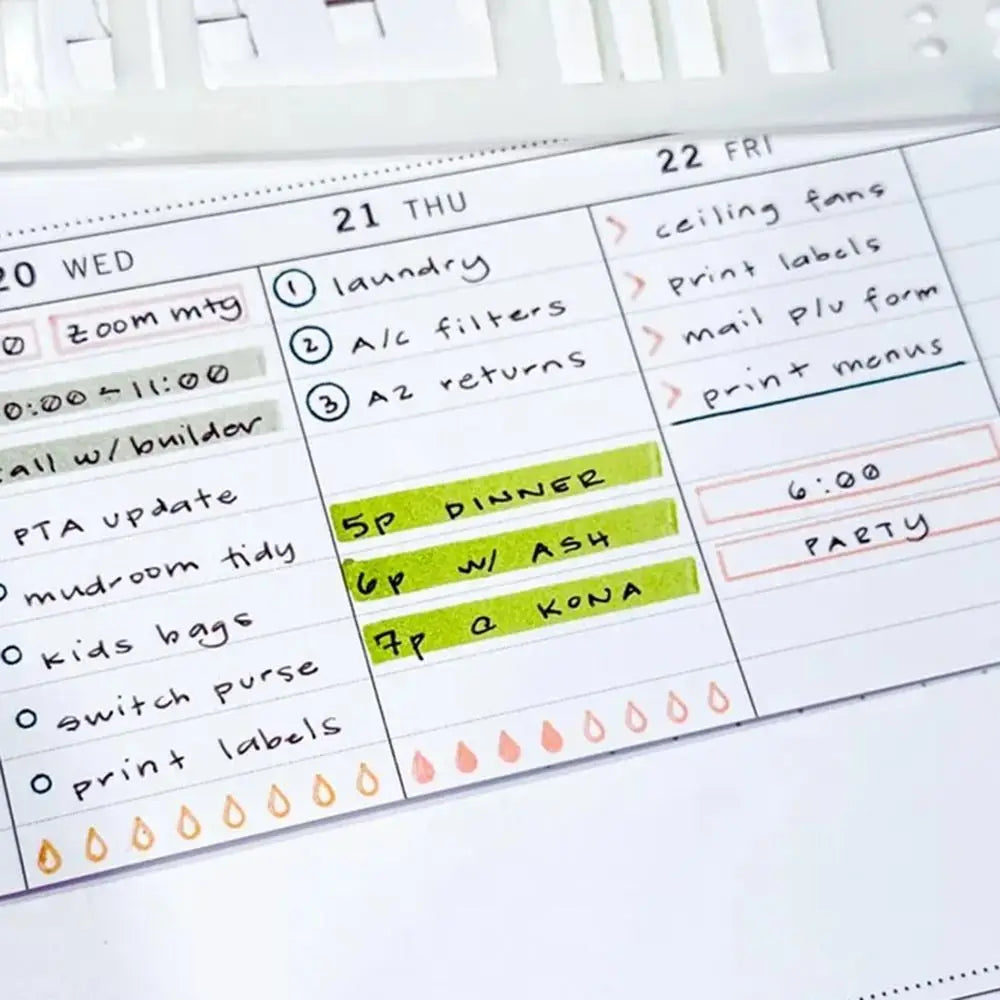 20 WED
Zoom mtg
0:00 - 11:00
all w/ builder
PTA update
mudroom tidy
kids bags
switch purse
print labels
21 THU
1 laundry
2 A/C filters
3 AZ returns
5p DINNER
6p w/ ASH
7p @ KONA
22 FRI
> ceiling fans
> print labels
> mail p/u form
> print menus
6:00
PARTY